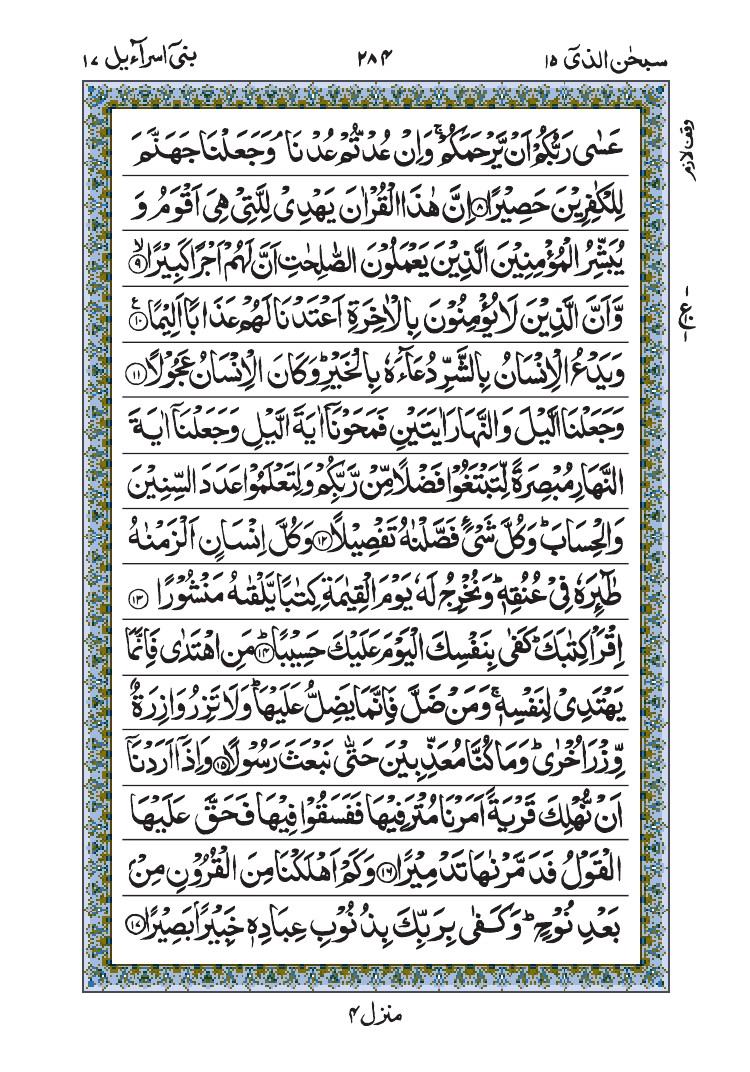 سبحٰن الذیٓ ۱۵
۲۸۴
بنیٓ اسرآءیل ۱۷
عَسٰى رَبُّكُمْ اَنْ یَّرْحَمَكُمْ ۚ وَاِنْ عُدْتُّمْ عُدْنَا ۘ وَجَعَلْنَا جَهَنَّمَ
لِلْكٰفِرِیْنَ حَصِیْرًا ﴿۸﴾ اِنَّ هٰذَا الْقُرْاٰنَ یَهْدِیْ لِلَّتِیْ هِیَ اَقْوَمُ وَ
یُبَشِّرُ الْمُؤْمِنِیْنَ الَّذِیْنَ یَعْمَلُوْنَ الصّٰلِحٰتِ اَنَّ لَهُمْ اَجْرًا كَبِیْرًا ۙ﴿۹﴾
وَّاَنَّ الَّذِیْنَ لَا یُؤْمِنُوْنَ بِالْاٰخِرَةِ اَعْتَدْنَا لَهُمْ عَذَابًا اَلِیْمًا ﴿۱۰﴾ ع
وَیَدْعُ الْاِنْسَانُ بِالشَّرِّ دُعَآءَهٗ بِالْخَیْرِ ؕ وَكَانَ الْاِنْسَانُ عَجُوْلًا ﴿۱۱﴾
وَجَعَلْنَا الَّیْلَ وَالنَّهَارَ اٰیَتَیْنِ فَمَحَوْنَاۤ اٰیَةَ الَّیْلِ وَجَعَلْنَاۤ اٰیَةَ
النَّهَارِ مُبْصِرَةً لِّتَبْتَغُوْا فَضْلًا مِّنْ رَّبِّكُمْ وَلِتَعْلَمُوْا عَدَدَ السِّنِیْنَ
وَالْحِسَابَ ؕ وَكُلَّ شَیْءٍ فَصَّلْنٰهُ تَفْصِیْلًا ﴿۱۲﴾ وَكُلَّ اِنْسَانٍ اَلْزَمْنٰهُ
طٰٓىِٕرَهٗ فِیْ عُنُقِهٖ ؕ وَنُخْرِجُ لَهٗ یَوْمَ الْقِیٰمَةِ كِتٰبًا یَّلْقٰىهُ مَنْشُوْرًا ﴿۱۳﴾
اِقْرَاْ كِتٰبَكَ ؕ كَفٰى بِنَفْسِكَ الْیَوْمَ عَلَیْكَ حَسِیْبًا ؕ﴿۱۴﴾ مَنِ اهْتَدٰى فَاِنَّمَا
یَهْتَدِیْ لِنَفْسِهٖ ۚ وَمَنْ ضَلَّ فَاِنَّمَا یَضِلُّ عَلَیْهَا ؕ وَلَا تَزِرُ وَازِرَةٌ
وِّزْرَ اُخْرٰى ؕ وَمَا كُنَّا مُعَذِّبِیْنَ حَتّٰى نَبْعَثَ رَسُوْلًا ﴿۱۵﴾ وَاِذَاۤ اَرَدْنَاۤ
اَنْ نُّهْلِكَ قَرْیَةً اَمَرْنَا مُتْرَفِیْهَا فَفَسَقُوْا فِیْهَا فَحَقَّ عَلَیْهَا
الْقَوْلُ فَدَمَّرْنٰهَا تَدْمِیْرًا ﴿۱۶﴾ وَكَمْ اَهْلَكْنَا مِنَ الْقُرُوْنِ مِنْ
بَعْدِ نُوْحٍ ؕ وَكَفٰى بِرَبِّكَ بِذُنُوْبِ عِبَادِهٖ خَبِیْرًۢا بَصِیْرًا ﴿۱۷﴾
وقف لازم
ع
منزل ۴